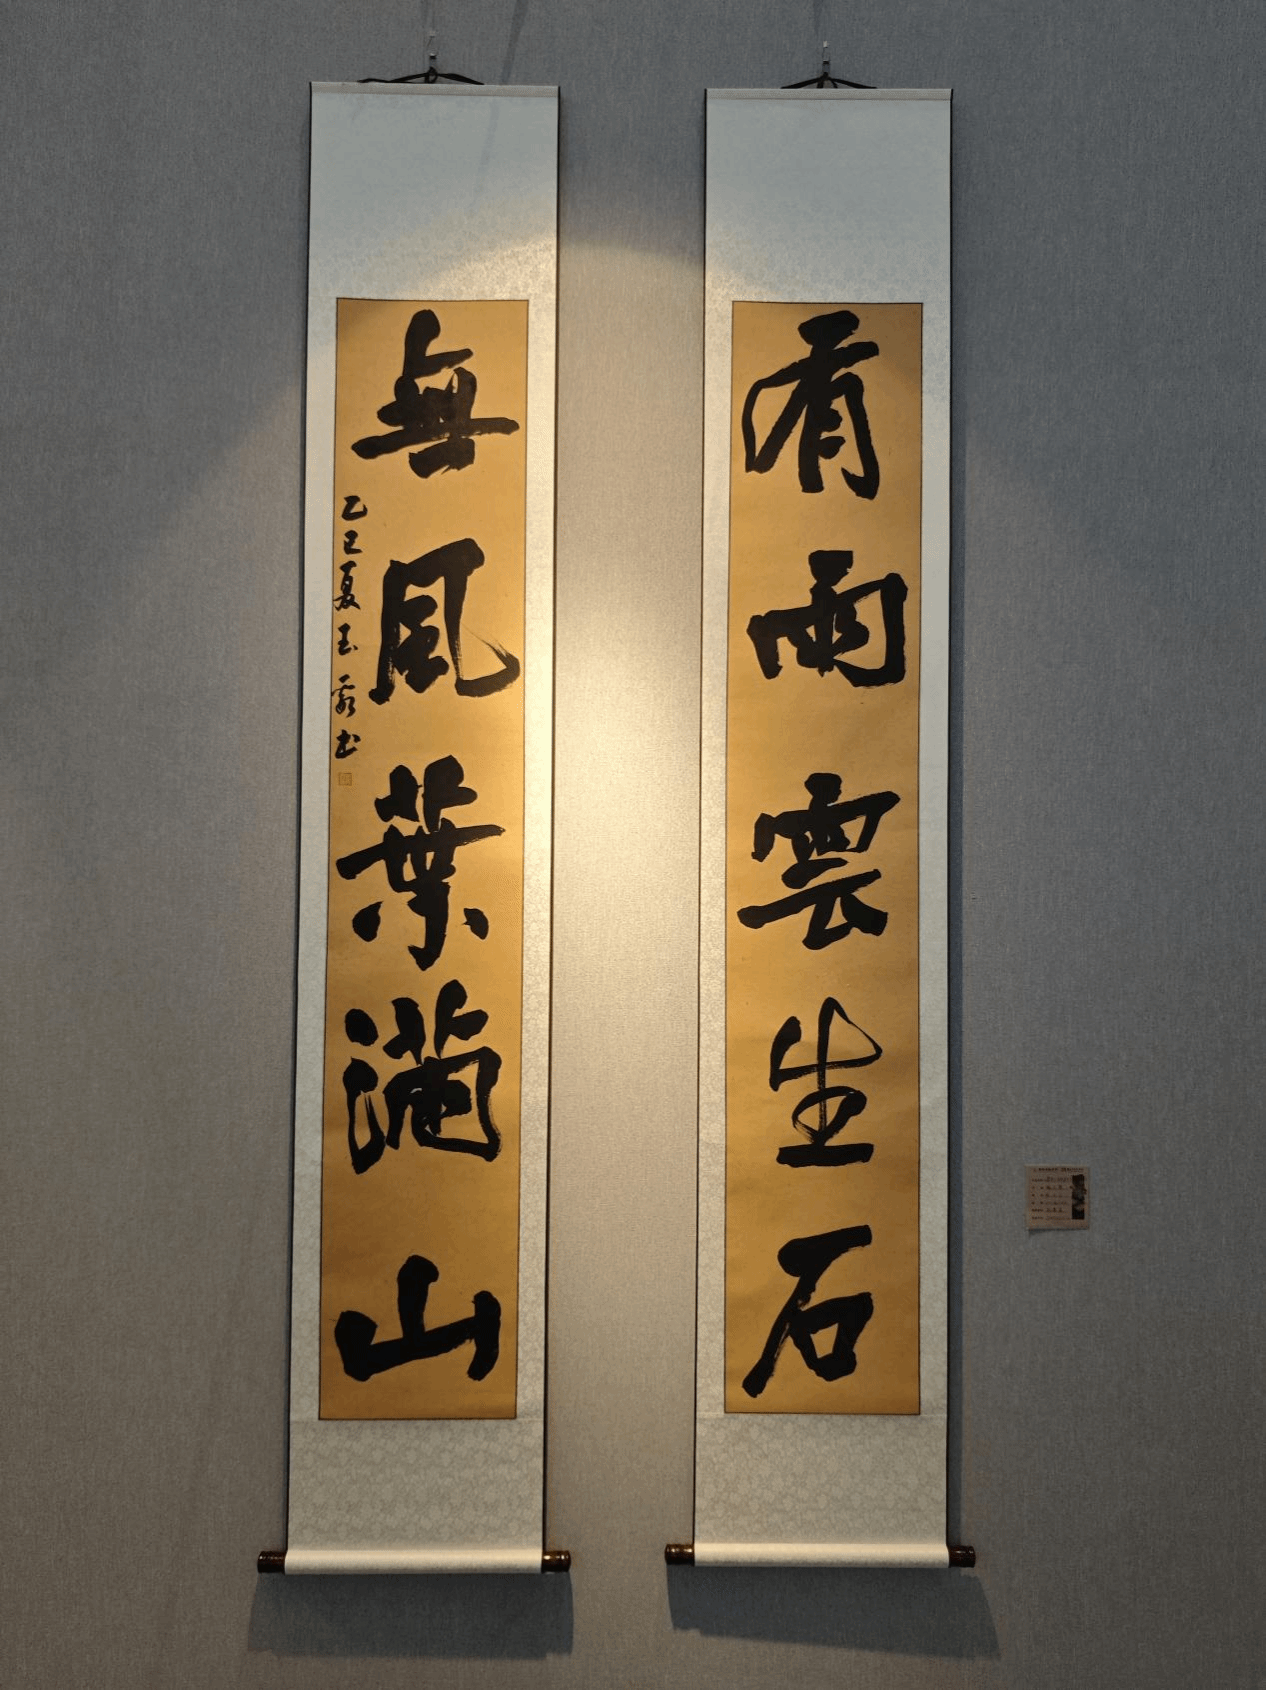 有雨雲生石
無風葉滿山
乙巳夏玉霞书